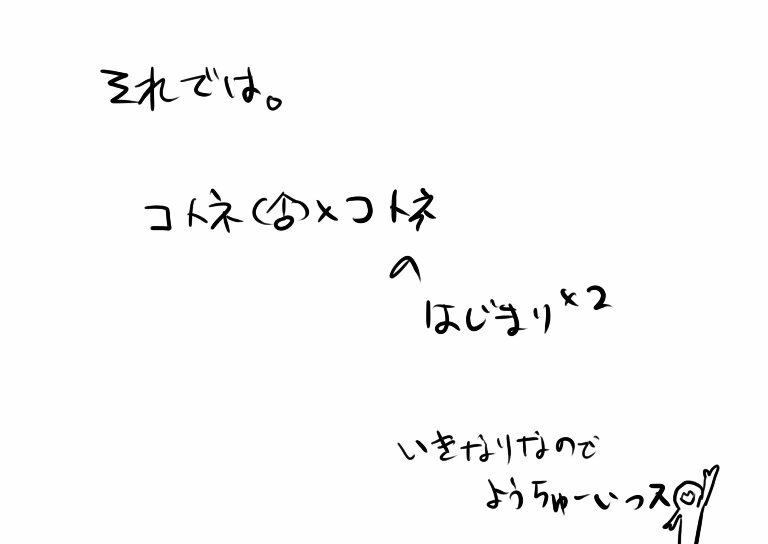 それでは。
コトネ(♂)×コトネ
の
はじまり×2
いきなりなので
ようちゅーいっス